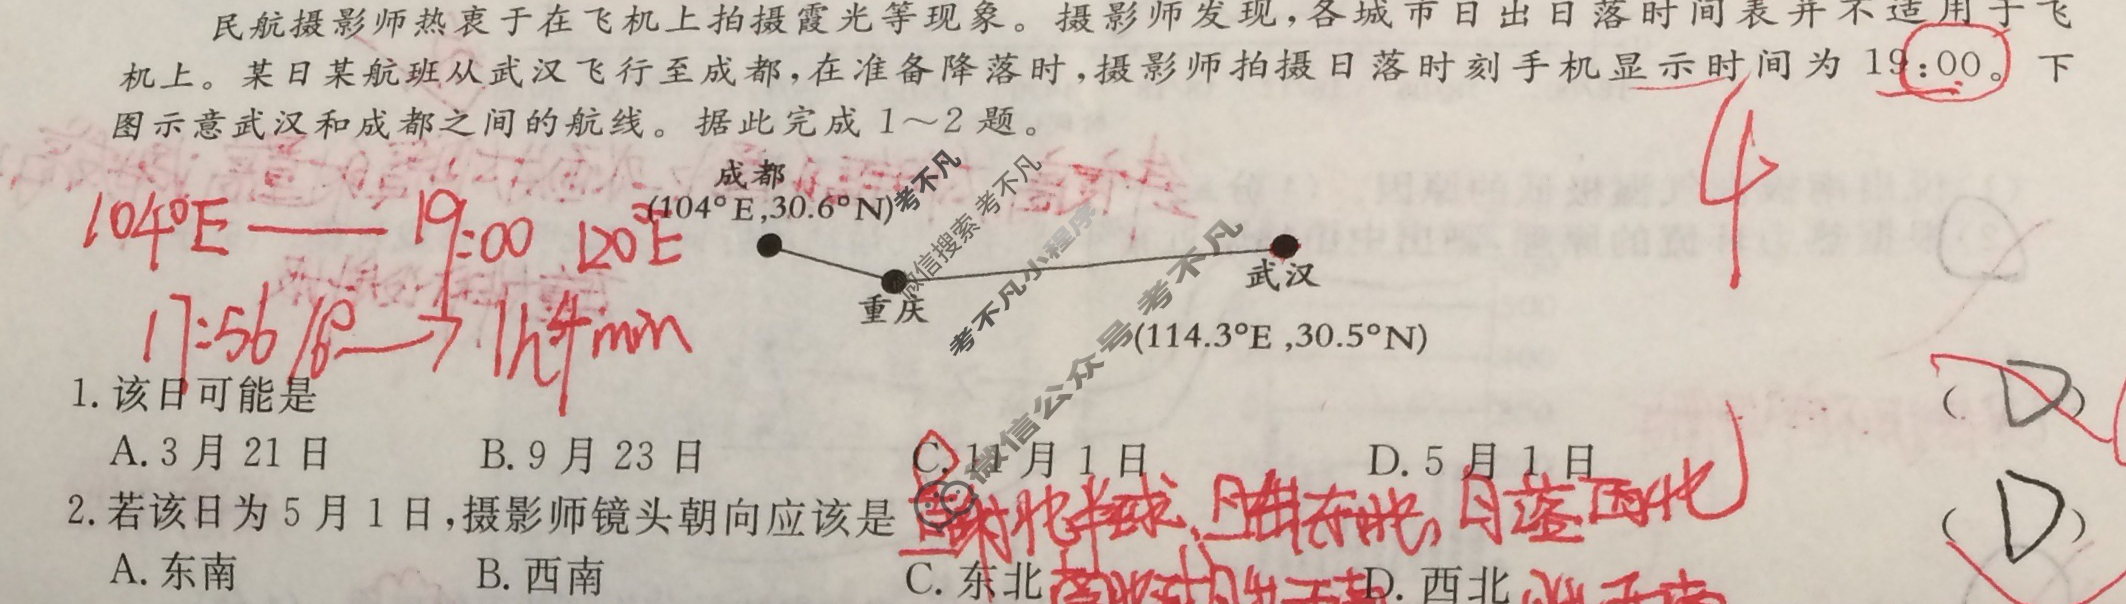 民航摄影师热衷于在飞机上拍摄霞光等现象。摄影师发现,各城市日出日落时间表并不适用于飞
机上。某日某航班从武汉飞行至成都,在准备降落时,摄影师拍摄日落时刻手机显示时间为 19:00。下
图示意武汉和成都之间的航线。据此完成 1～2 题。
4
成都
(104°E,30.6°N)
104°E — 19:00 120°E
重庆
武汉
(114.3°E ,30.5°N)
17:56
1h4min
考不凡
微信搜索考不凡
考不凡小程序
微信公众号 考不凡
1. 该日可能是
( D )
A. 3 月 21 日 B. 9 月 23 日 C. 11 月 1 日 D. 5 月 1 日
北半球、日出东北,日落西北
2. 若该日为 5 月 1 日,摄影师镜头朝向应该是
( D )
A. 东南 B. 西南 C. 东北 D. 西北